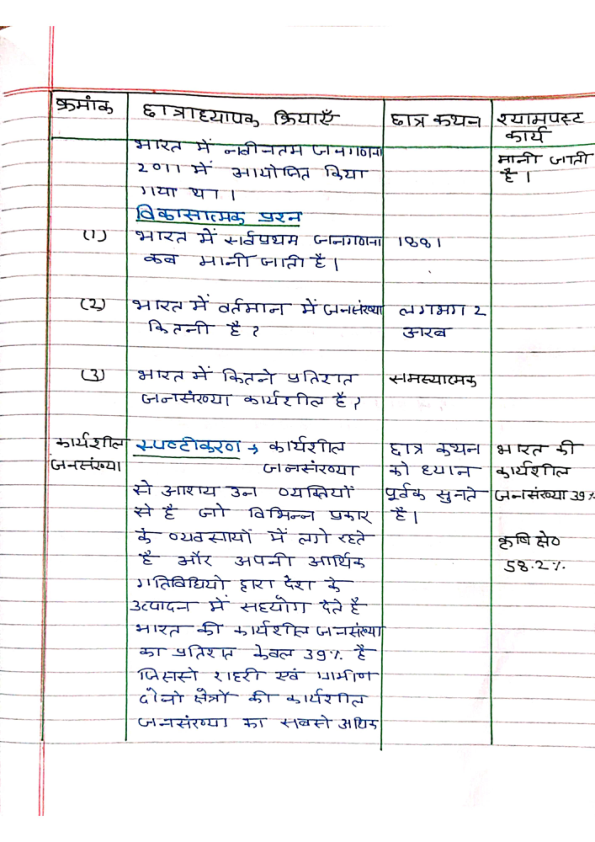 क्रमांक
छात्राध्यापक क्रियाएँ
छात्र कथन
श्यामपस्ट
कार्य
भारत में नवीनतम जनगणना
2011 में आयोजित किया
गया था।
मानी जाती
है।
विकासात्मक प्रश्न
(1)
भारत में सर्वप्रथम जनगणना
कब मानी जाती है।
1881
(2)
भारत में वर्तमान में जनसंख्या
कितनी है?
लगभग 2
अरब
(3)
भारत में कितने प्रतिशत
जनसंख्या कार्यशील है?
समस्यात्मक
कार्यशील
जनसंख्या
स्पष्टीकरण → कार्यशील
जनसंख्या
से आशय उन व्यक्तियों
से है जो विभिन्न प्रकार
के व्यवसायों में लगे रहते
है और अपनी आर्थिक
गतिविधियो द्वारा देश के
उत्पादन में सहयोग देते है
भारत की कार्यशील जनसंख्या
का प्रतिशत केवल 39% है
जिससे शहरी एवं ग्रामीण
दोनो क्षेत्रों की कार्यशील
जनसंख्या का सबसे अधिक
छात्र कथन
को ध्यान
पूर्वक सुनते
है।
भारत की
कार्यशील
जनसंख्या 39%
कृषि क्षे०
58.2%